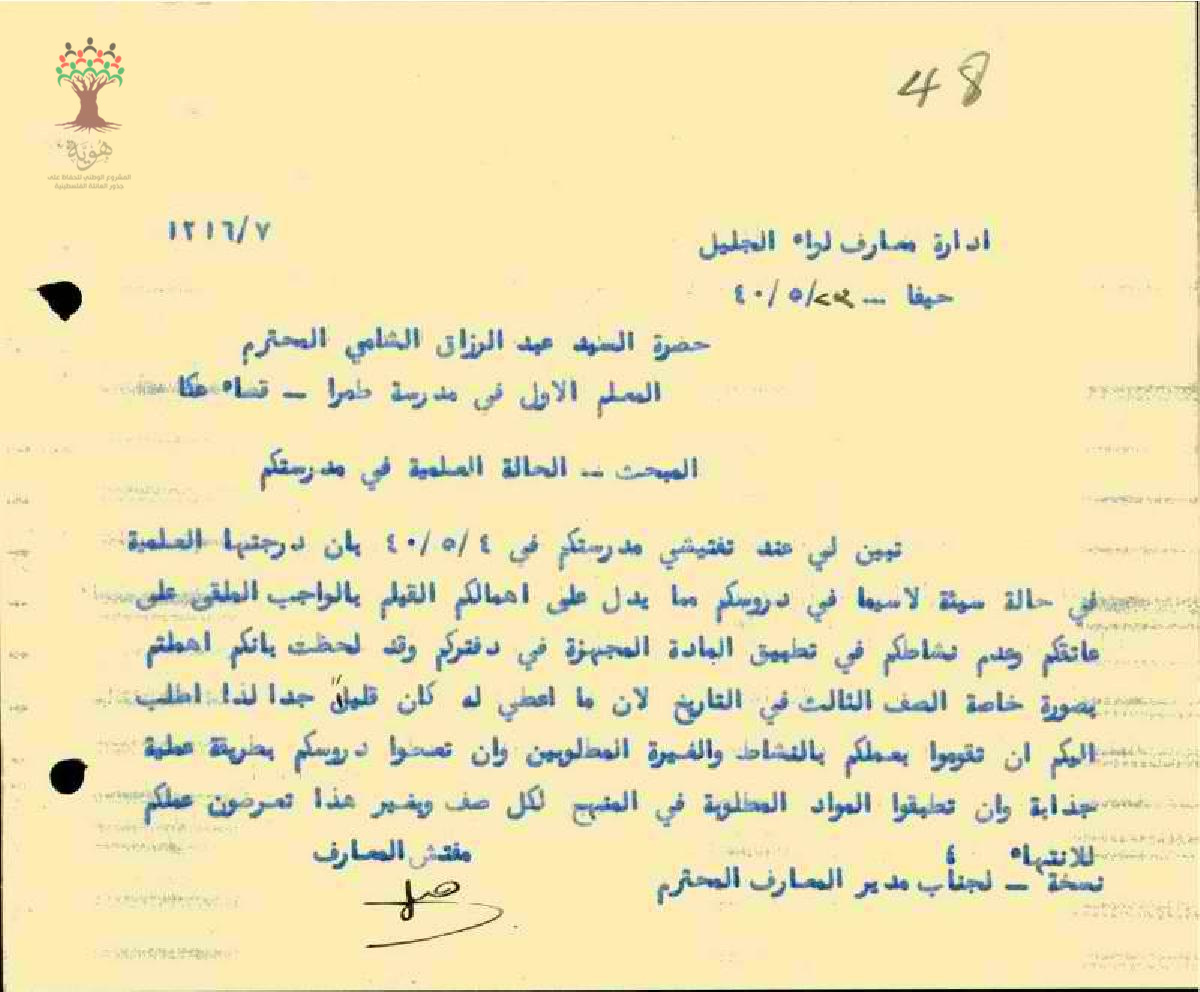 48
هوية
المشروع الوطني للحفاظ على
جذور العائلة الفلسطينية
١٢١٦/٧
ادارة معارف لواء الجليل
حيفا — ٤٠/٥/٢٣
حضرة السيد عبد الرزاق الشامي المحترم
المعلم الاول في مدرسة طمرا — قضاء عكا
المبحث — الحالة العلمية في مدرستكم
تبين لي عند تفتيشي مدرستكم في ٤٠/٥/٤ بان درجتها العلمية
في حالة سيئة لاسيما في دروسكم مما يدل على اهمالكم القيام بالواجب الملقى على
عاتقكم وعدم نشاطكم في تطبيق المادة المجهزة في دفتركم وقد لحظت بانكم اهملتم
بصورة خاصة الصف الثالث في التاريخ لان ما اعطي له كان قليلاً جدا لذا اطلب
اليكم ان تقوموا بعملكم بالنشاط والغيرة المطلوبين وان تصحوا دروسكم بطريقة عملية
جذابة وان تطبقوا المواد المطلوبة في المنهج لكل صف وبغير هذا تعرضون عملكم
للانتهاء ٤
مفتش المعارف
نسخة — لجناب مدير المعارف المحترم